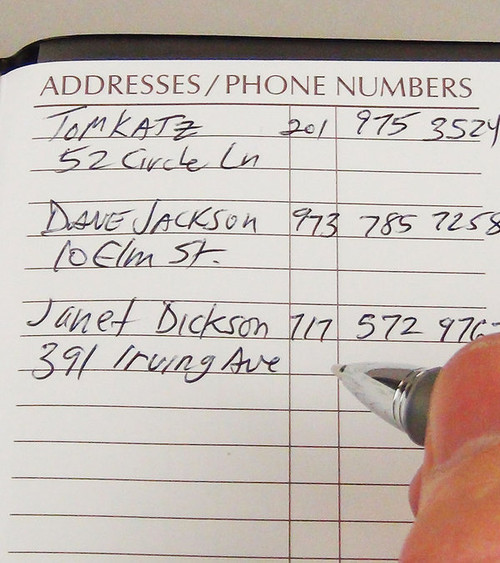 ADDRESSES/PHONE NUMBERS
TOM KATZ 201 975 3524
52 Circle Ln
DAVE JACKSON 973 785 7258
10 Elm St.
Janet Dickson 717 572
391 Irving Ave